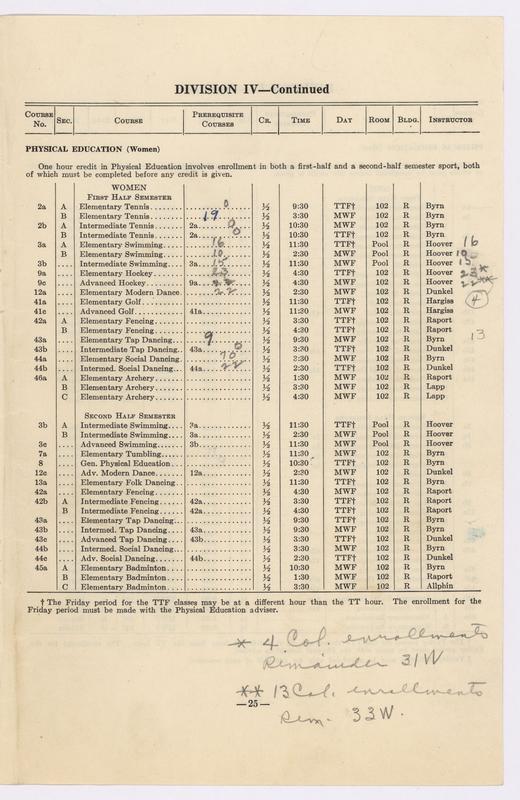 DIVISION IV—Continued
COURSE No. SEC. COURSE PREREQUISITE COURSES CR. TIME DAY ROOM BLDG. INSTRUCTOR
PHYSICAL EDUCATION (Women)
One hour credit in Physical Education involves enrollment in both a first-half and a second-half semester sport, both
of which must be completed before any credit is given.
WOMEN
FIRST HALF SEMESTER
2a A Elementary Tennis........ 0 ½ 9:30 TTF† 102 R Byrn
B Elementary Tennis........ 19 ½ 3:30 MWF 102 R Byrn
2b A Intermediate Tennis....... 2a 0 ½ 10:30 MWF 102 R Byrn
B Intermediate Tennis....... 2a 0 ½ 10:30 TTF† 102 R Byrn
3a A Elementary Swimming..... 16 ½ 11:30 TTF† Pool R Hoover 16
B Elementary Swimming..... 10 ½ 2:30 MWF Pool R Hoover 10
3b .... Intermediate Swimming.... 3a 15 ½ 11:30 MWF Pool R Hoover 15
9a .... Elementary Hockey........ 23 ½ 4:30 TTF† 102 R Hoover 23*
9c .... Advanced Hockey......... 9a ½ 4:30 MWF 102 R Hoover 22**
12a .... Elementary Modern Dance. 22 ½ 2:30 MWF 102 R Dunkel
41a .... Elementary Golf.......... ½ 11:30 TTF† 102 R Hargiss (4)
41c .... Advanced Golf............ 41a ½ 11:30 MWF 102 R Hargiss
42a A Elementary Fencing....... ½ 3:30 TTF† 102 R Raport
B Elementary Fencing....... ½ 4:30 TTF† 102 R Raport
43a .... Elementary Tap Dancing.. 9 ½ 9:30 MWF 102 R Byrn 13
43b .... Intermediate Tap Dancing. 43a 0 ½ 3:30 TTF† 102 R Dunkel
44a .... Elementary Social Dancing. 70 ½ 2:30 MWF 102 R Byrn
44b .... Intermed. Social Dancing... 44a 22 ½ 2:30 TTF† 102 R Dunkel
46a A Elementary Archery....... ½ 1:30 MWF 102 R Raport
B Elementary Archery....... ½ 3:30 MWF 102 R Lapp
C Elementary Archery....... ½ 4:30 MWF 102 R Lapp
SECOND HALF SEMESTER
3b A Intermediate Swimming.... 3a ½ 11:30 TTF† Pool R Hoover
B Intermediate Swimming.... 3a ½ 2:30 MWF Pool R Hoover
3c .... Advanced Swimming....... 3b ½ 11:30 MWF Pool R Hoover
7a .... Elementary Tumbling...... ½ 11:30 MWF 102 R Byrn
8 .... Gen. Physical Education.... ½ 10:30 TTF† 102 R Byrn
12c .... Adv. Modern Dance....... 12a ½ 2:30 MWF 102 R Dunkel
13a .... Elementary Folk Dancing.. ½ 11:30 TTF† 102 R Byrn
42a .... Elementary Fencing....... ½ 4:30 MWF 102 R Raport
42b A Intermediate Fencing...... 42a ½ 3:30 TTF† 102 R Raport
B Intermediate Fencing...... 42a ½ 4:30 TTF† 102 R Raport
43a .... Elementary Tap Dancing... ½ 9:30 TTF† 102 R Byrn
43b .... Intermed. Tap Dancing.... 43a ½ 9:30 MWF 102 R Byrn
43c .... Advanced Tap Dancing.... 43b ½ 3:30 TTF† 102 R Dunkel
44b .... Intermed. Social Dancing.. ½ 3:30 MWF 102 R Byrn
44c .... Adv. Social Dancing....... 44b ½ 2:30 TTF† 102 R Dunkel
45a A Elementary Badminton.... ½ 10:30 MWF 102 R Byrn
B Elementary Badminton.... ½ 1:30 MWF 102 R Raport
C Elementary Badminton.... ½ 3:30 MWF 102 R Allphin
† The Friday period for the TTF classes may be at a different hour than the TT hour. The enrollment for the
Friday period must be made with the Physical Education adviser.
* 4 Col. enrollments
Remainder 31W
** 13 Col. enrollments
—25—
Rem. 33W.